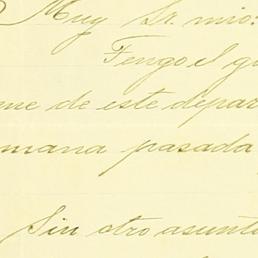 Muy Sr. mio:
Tengo el g
me de este depar
mana pasada
Sin otro asunt